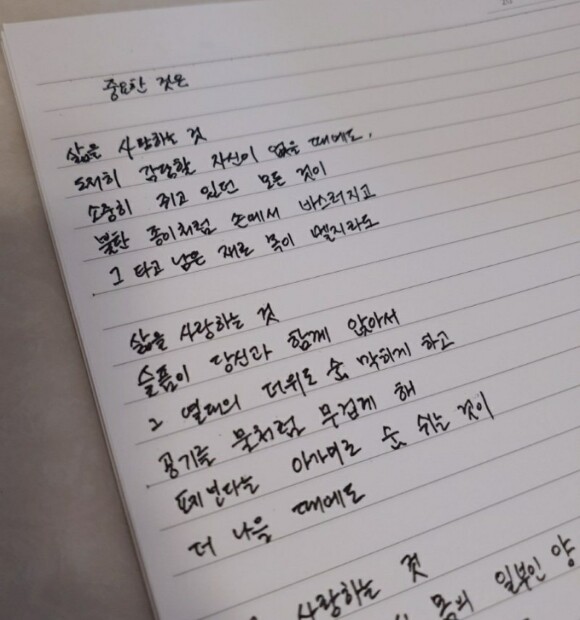 중요한 것은
삶을 사랑하는 것
도저히 감당할 자신이 없을 때에도,
소중히 쥐고 있던 모든 것이
불탄 종이처럼 손에서 바스러지고
그 타고 남은 재로 목이 멜지라도
삶을 사랑하는 것
슬픔이 당신과 함께 앉아서
그 열대의 더위로 숨 막히게 하고
공기를 물처럼 무겁게 해
폐보다는 아가미로 숨 쉬는 것이
더 나을 때에도
사랑하는 것
몸의 일부인 양